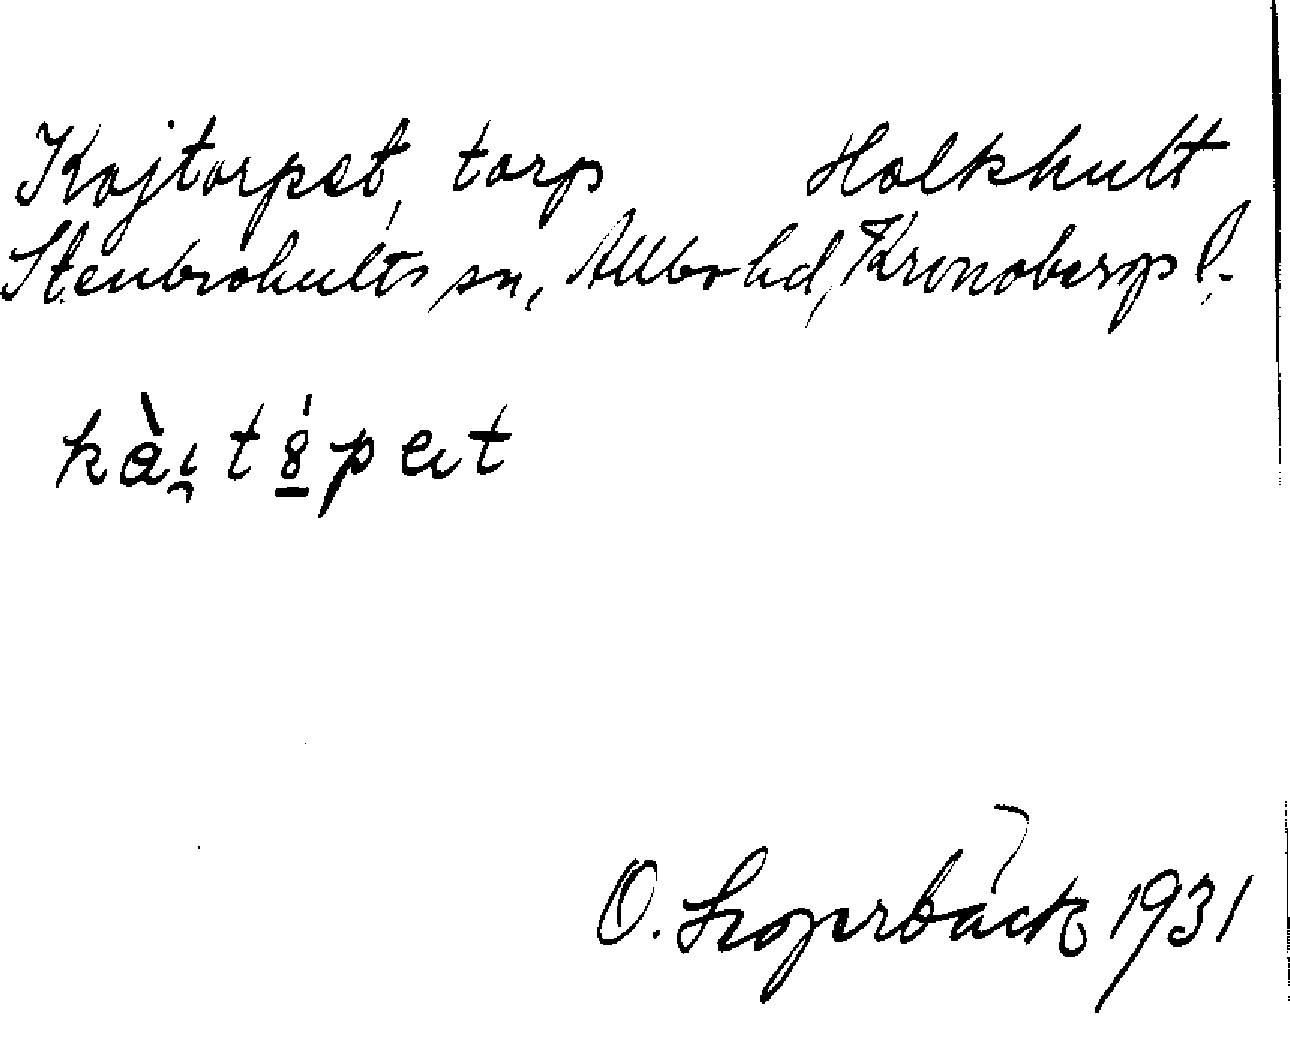 Kojtorpet, torp Holkhult
Stenbrohults sn, Allbo hd, Kronobergs l.
kàı̯tǿpet
O. Lagerbäck 1931